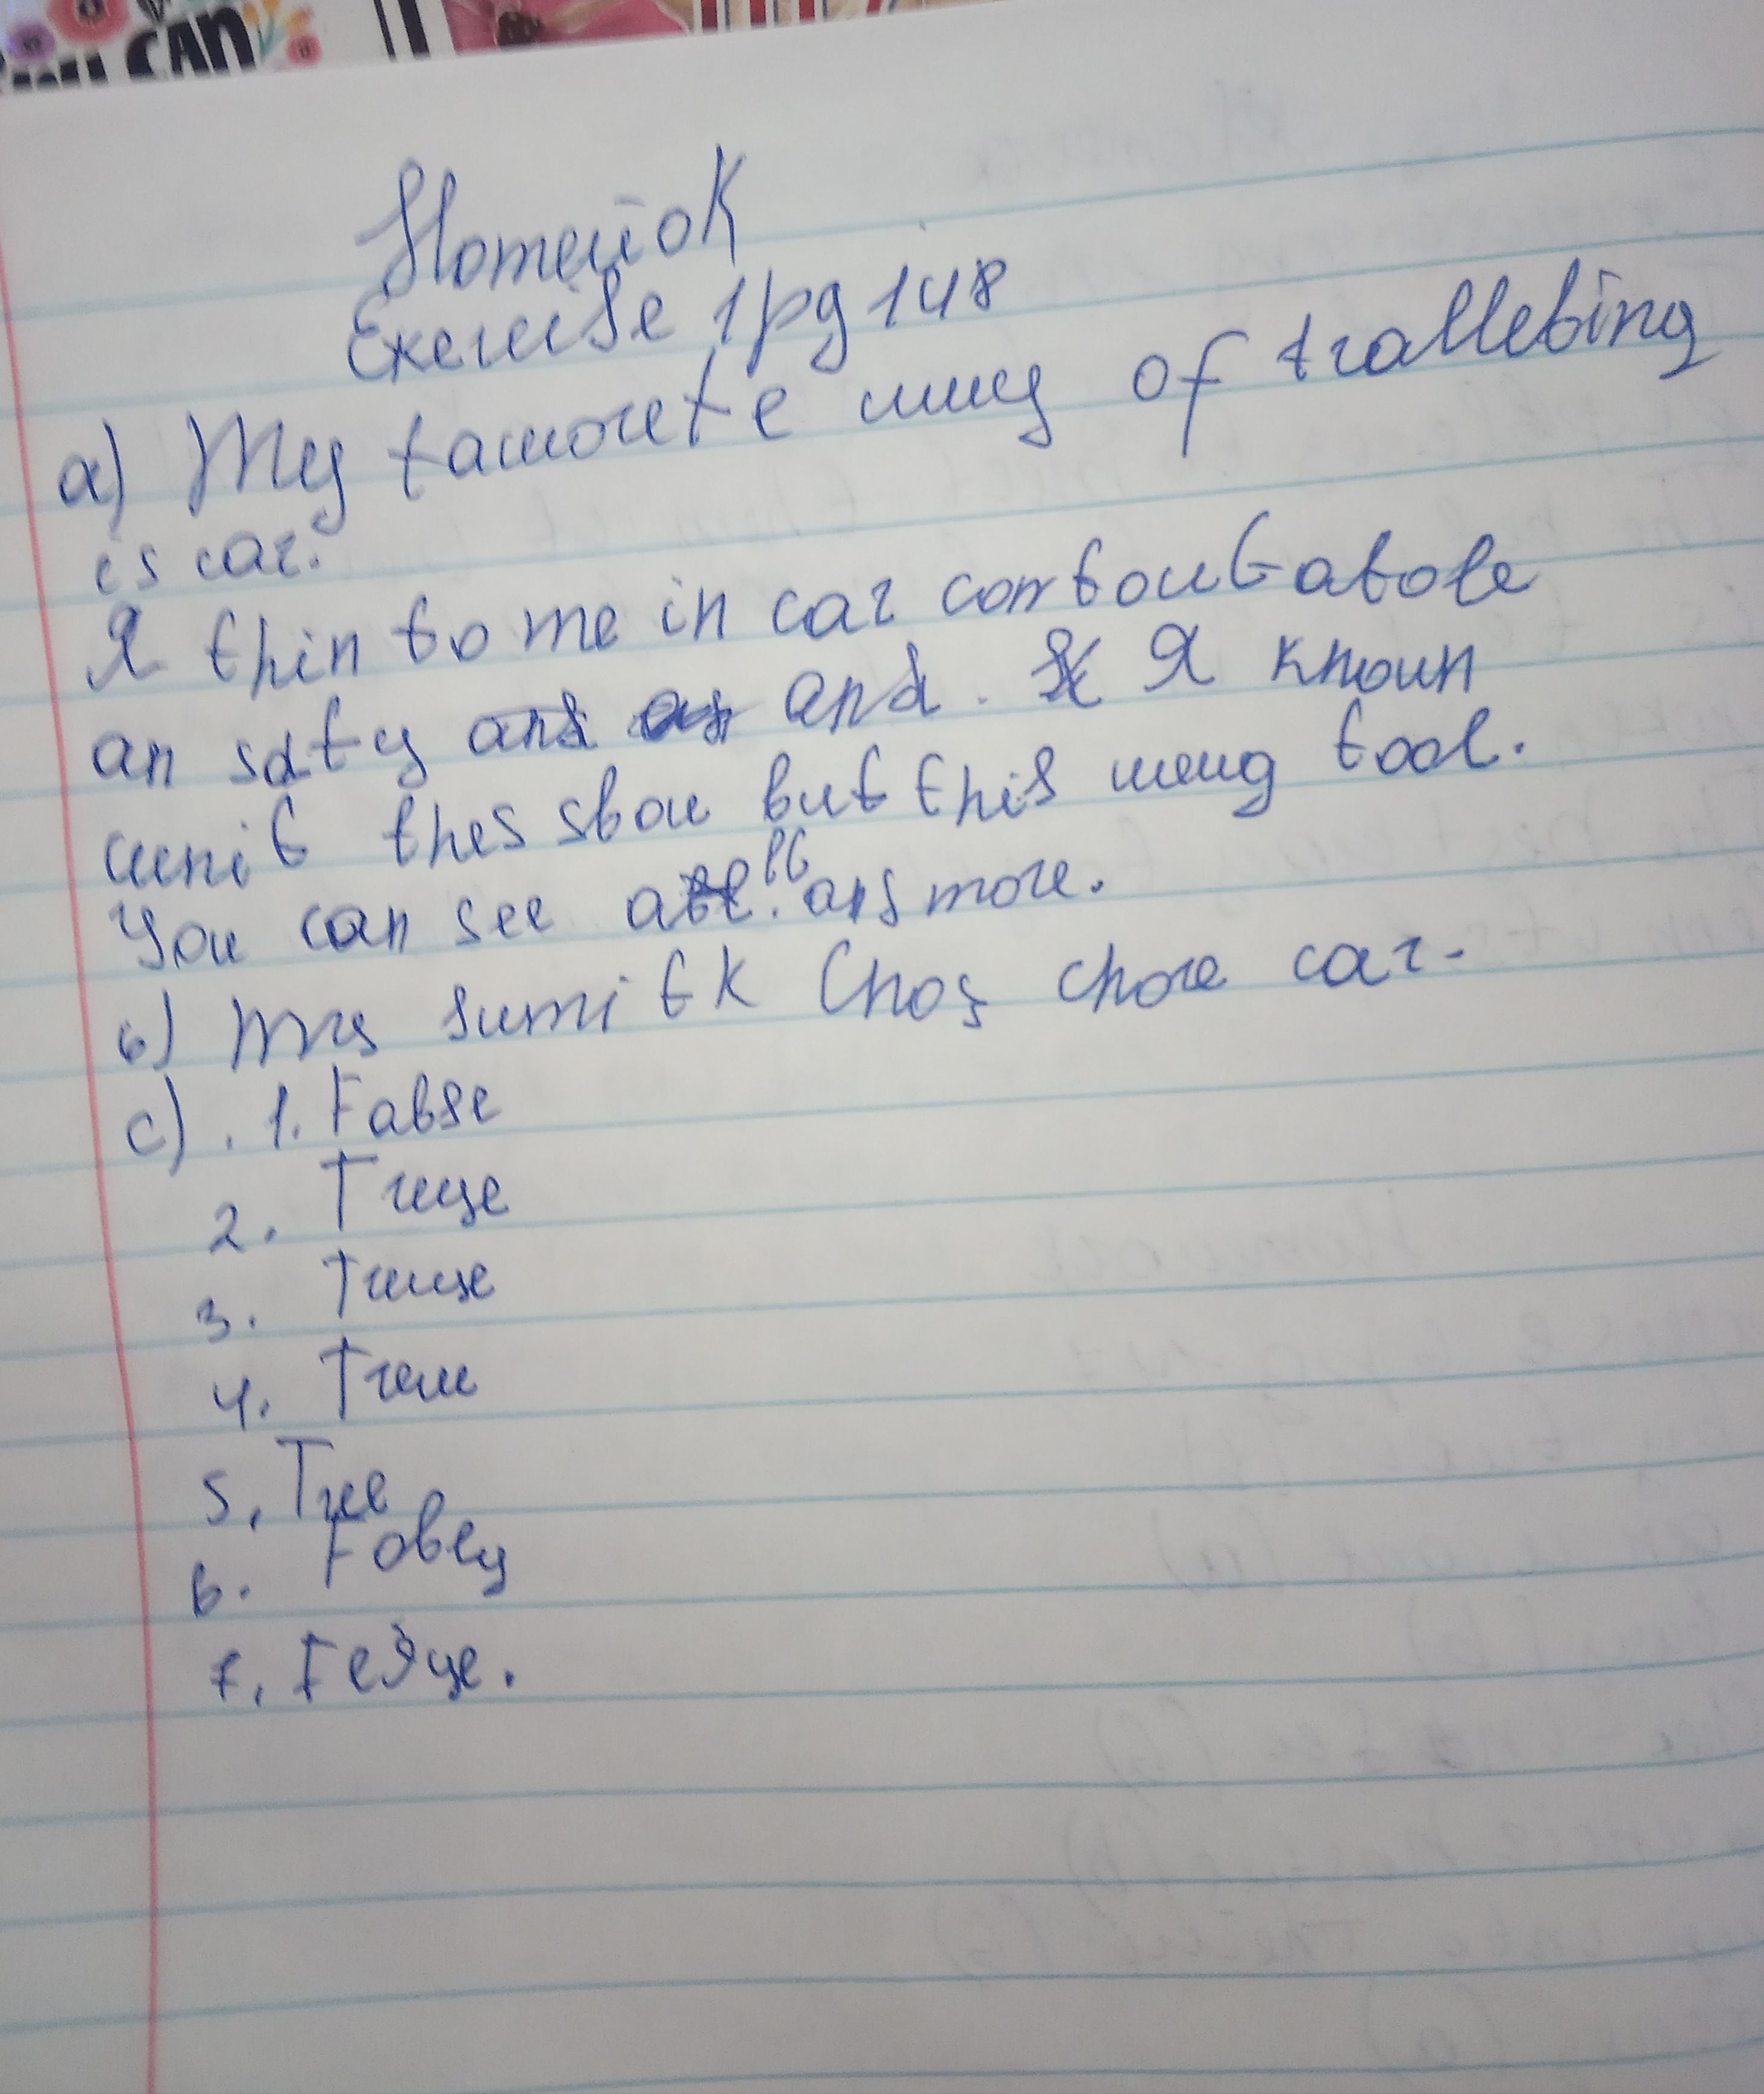 CAN
Homewok
Exercise 1 pg 148
a) My tamorete wey of trallebing
is car.
I thin to me in car comfoutabole
an safty and and. I known
unit thes slow but this weng tool.
You can see all ans more.
b) Mrs Sumitk Chos chore car.
c). 1. Fabse
2. Truye
3. Truue
4. Truu
5. True
6. Fobey
7.